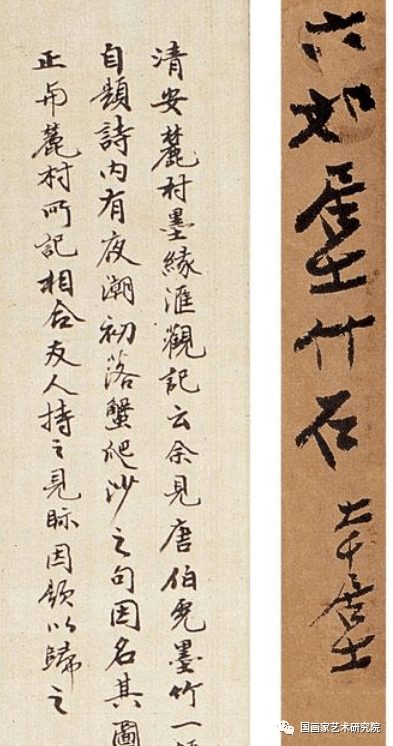 六如居士竹石
大千居士
清安麓村墨緣滙觀記云余見唐伯虎墨竹一幅
自題詩内有夜潮初落蟹爬沙之句因名其圖
正與麓村所記相合友人持之見眎因題以歸之
国画家艺术研究院